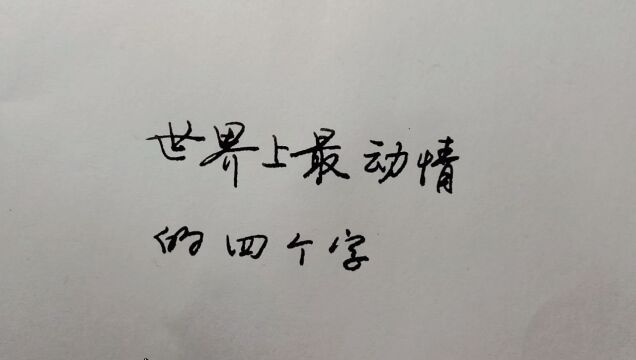 世界上最动情
的四个字